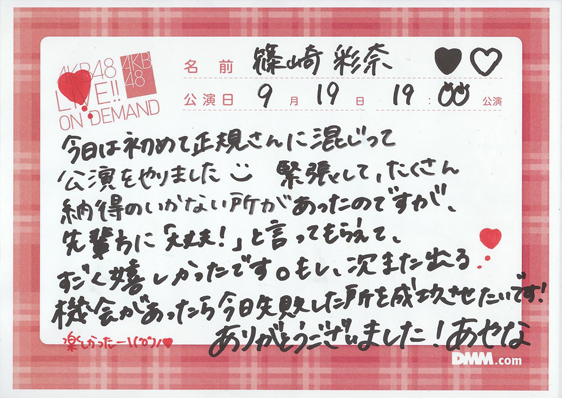 AKB48
LIVE!!
ON DEMAND
AKB
48
名前 篠崎 彩奈
公演日 9月19日 19:00 公演
今日は初めて正規さんに混じって
公演をやりました 緊張して、たくさん
納得のいかない所があったのですが、
先輩方に「大丈夫!」と言ってもらえて、
すごく嬉しかったです。もし、次また出る
機会があったら今日失敗した所を成功させたいです!
楽しかったー\(^o^)/
ありがとうございました!あやな
DMM.com